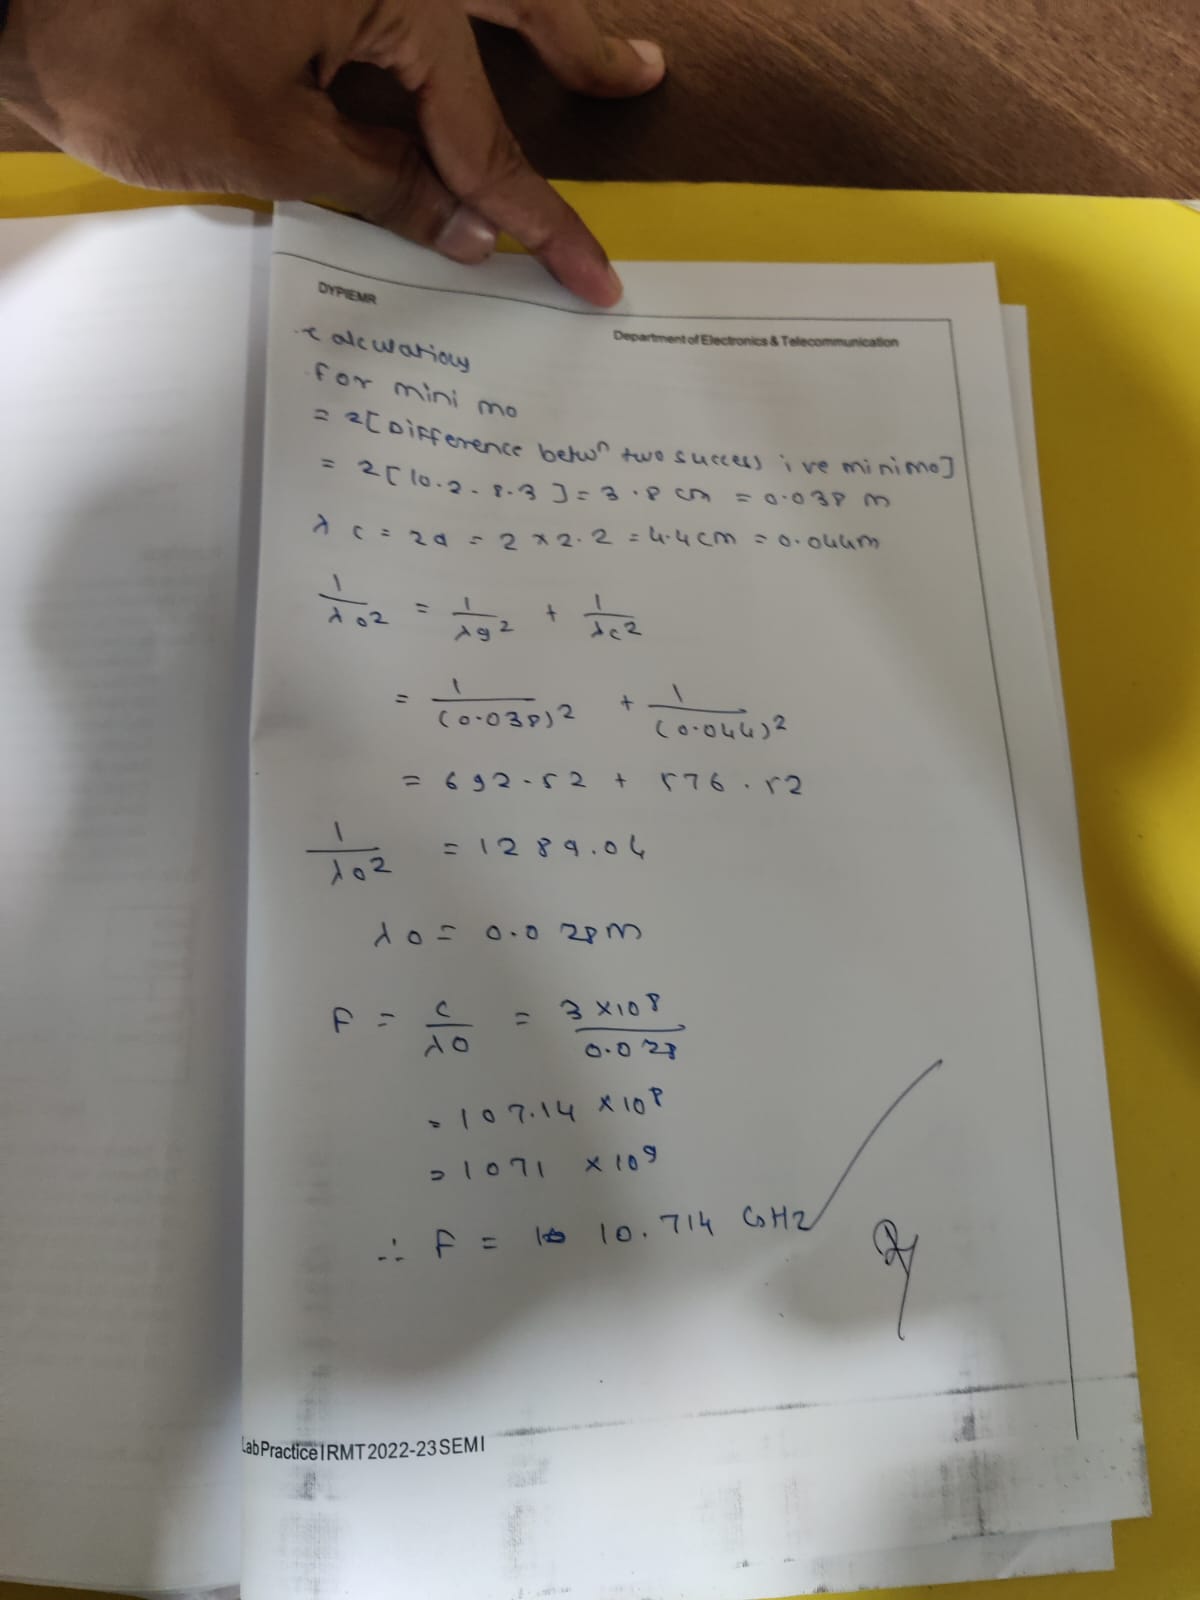 DYPIEMR
Department of Electronics & Telecommunication
calculations
for minima
= 2[Difference betwn two successive minima]
= 2[10.2 - 8.3] = 3.8 cm = 0.038 m
λc = 2a = 2 × 2.2 = 4.4cm = 0.044m
1/λ0² = 1/λg² + 1/λc²
= 1/(0.038)² + 1/(0.044)²
= 692.52 + 576.52
1/λ0² = 1289.04
λ0 = 0.028m
F = c/λ0 = 3×10⁸/0.028
= 107.14 × 10⁸
= 1071 × 10⁹
∴ F = 10.714 GHz
Lab Practice I RMT 2022-23 SEM I